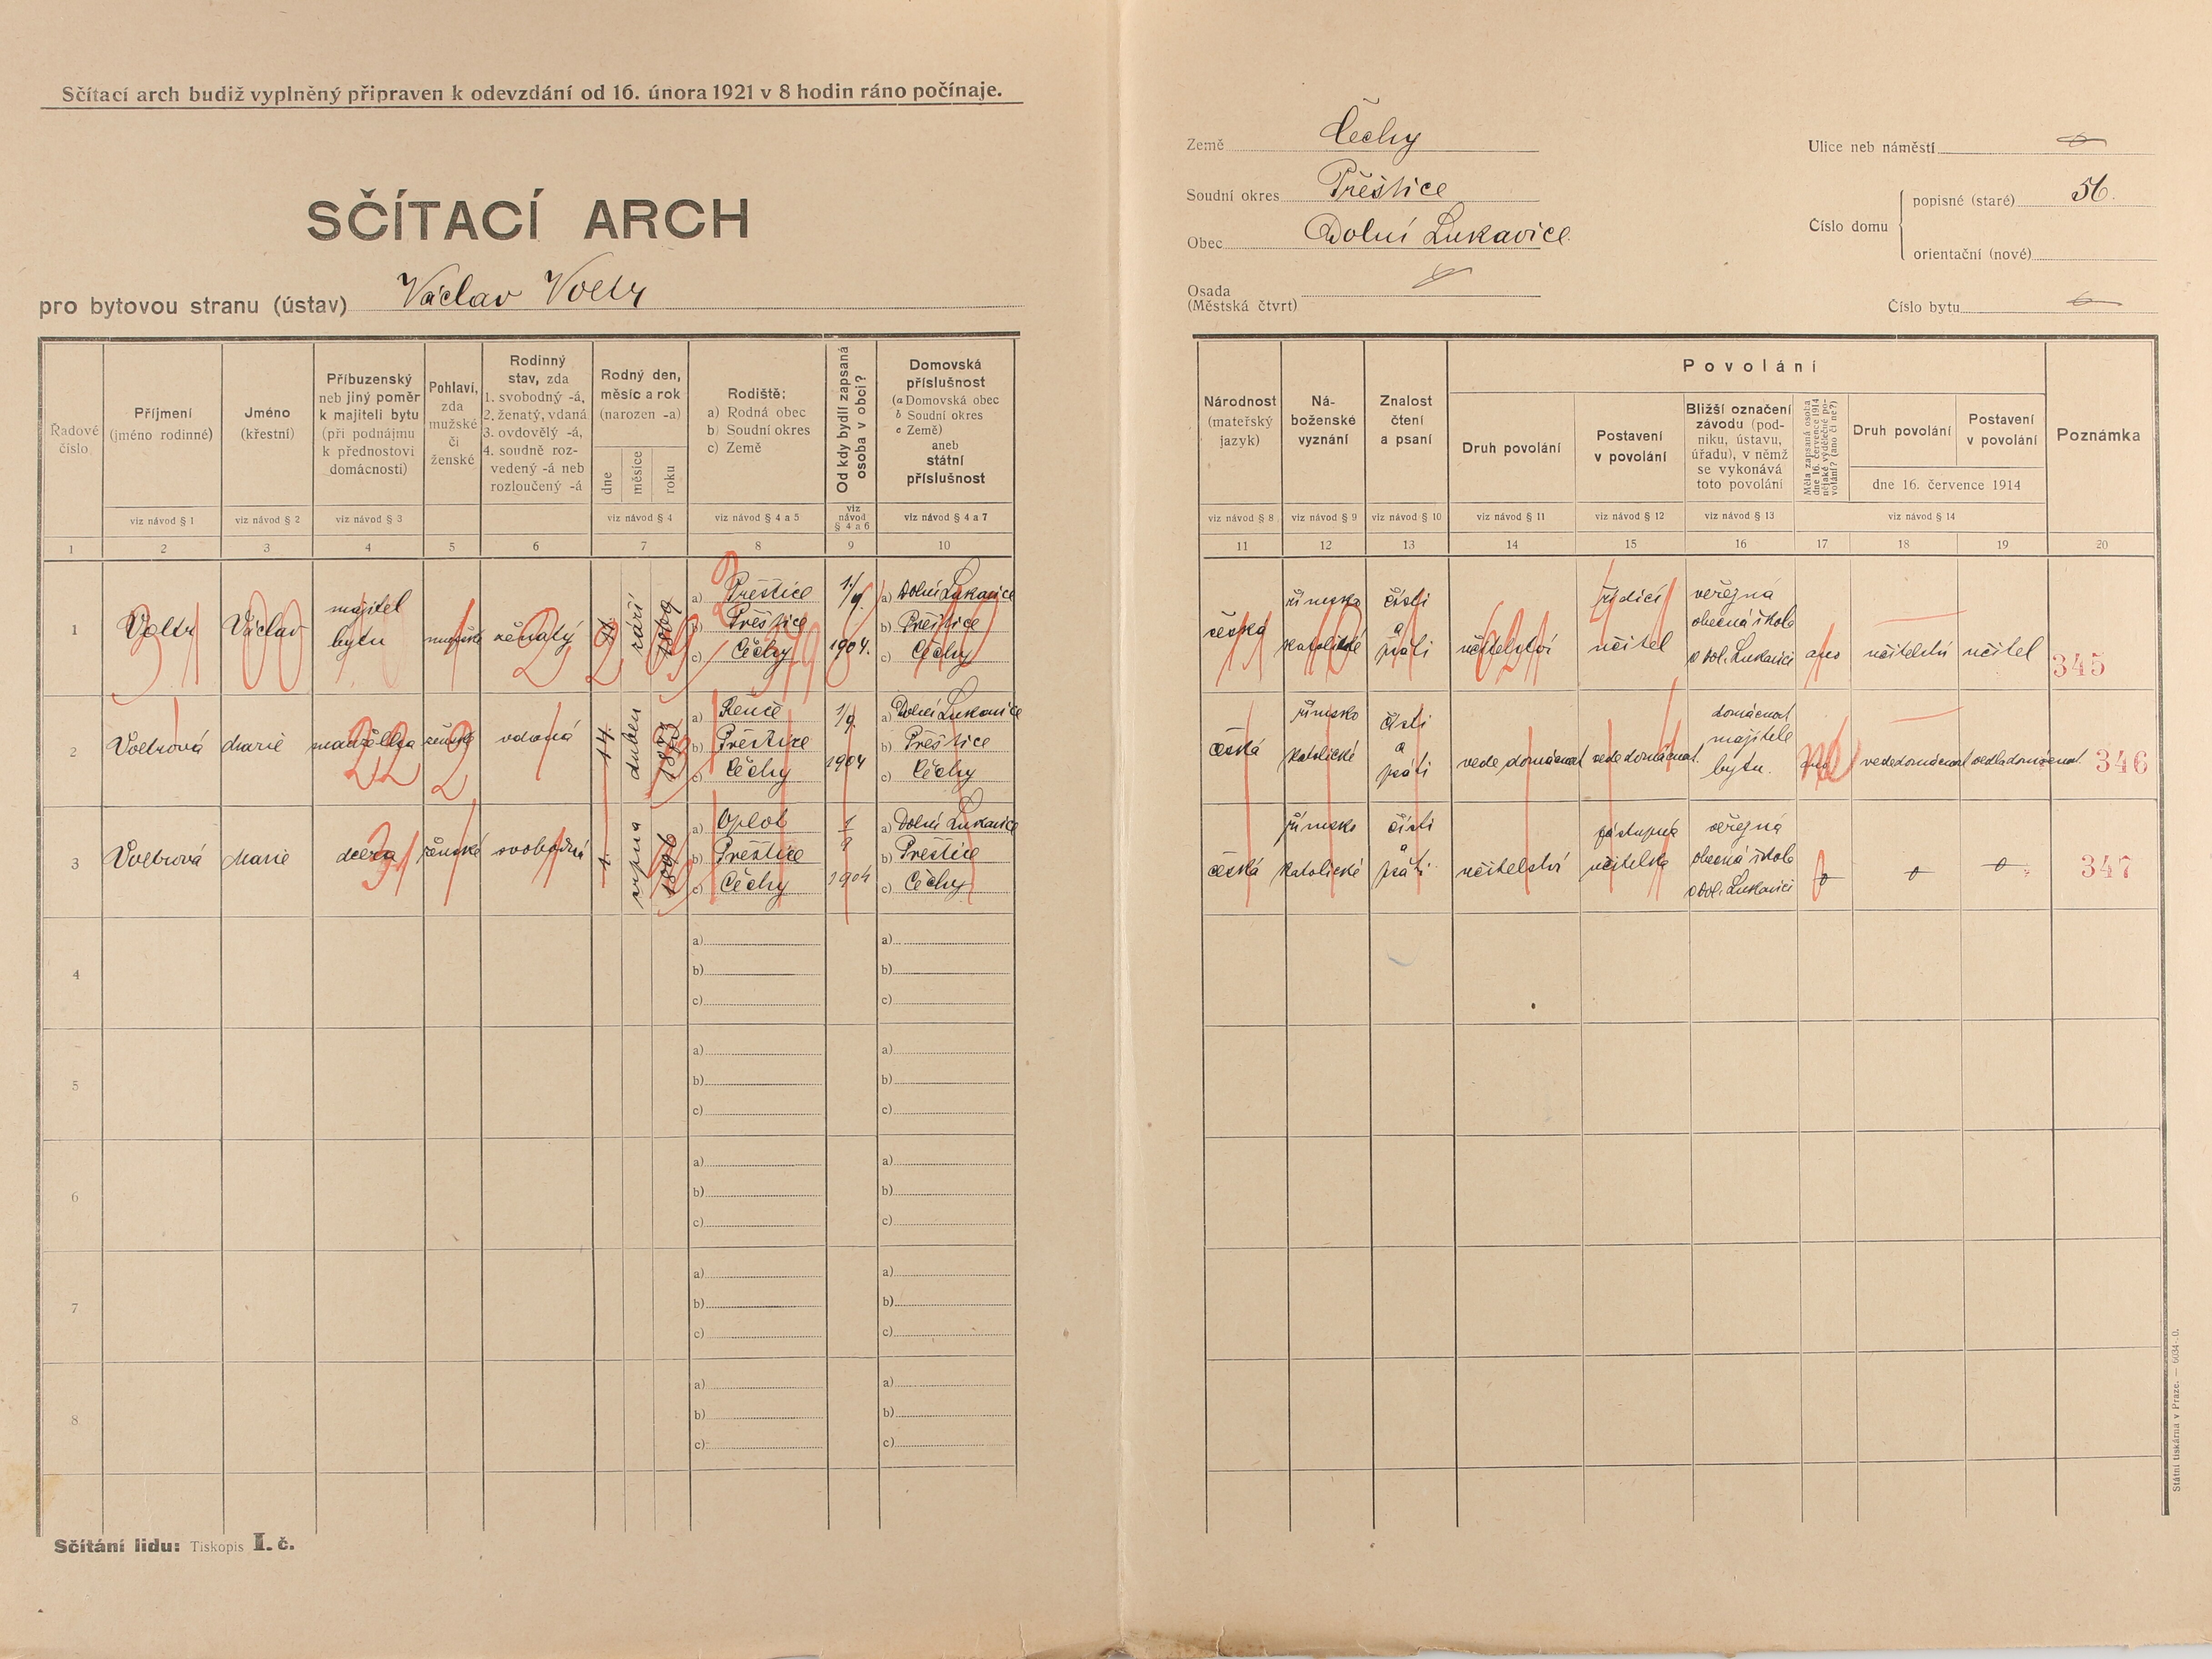 Sčítací arch budiž vyplněný připraven k odevzdání od 16. února 1921 v 8 hodin ráno počínaje.
SČÍTACÍ ARCH
pro bytovou stranu (ústav) Václav Voltr
Země Čechy
Soudní okres Přeštice
Obec Dolní Lukavice
Osada
(Městská čtvrt)
Ulice neb náměstí
Číslo domu
popisné (staré) 56.
orientační (nové)
Číslo bytu
Řadové číslo
Příjmení (jméno rodinné)
Jméno (křestní)
Příbuzenský neb jiný poměr k majiteli bytu (při podnájmu k přednostovi domácnosti)
Pohlaví, zda mužské či ženské
Rodinný stav, zda 1. svobodný -á, 2. ženatý, vdaná 3. ovdovělý -á, 4. soudně rozvedený -á neb rozloučený -á
Rodný den, měsíc a rok (narozen -a)
dne měsíce roku
Rodiště: a) Rodná obec b) Soudní okres c) Země
Od kdy bydlí zapsaná osoba v obci?
Domovská příslušnost (a Domovská obec b Soudní okres c Země) aneb státní příslušnost
Národnost (mateřský jazyk)
Náboženské vyznání
Znalost čtení a psaní
Povolání
Druh povolání
Postavení v povolání
Bližší označení závodu (podniku, ústavu, úřadu), v němž se vykonává toto povolání
Měla zapsaná osoba dne 16. července 1914 nějaké výdělečné povolání? (ano či ne?)
Druh povolání
Postavení v povolání
dne 16. července 1914
Poznámka
viz návod § 1 viz návod § 2 viz návod § 3 viz návod § 4 viz návod § 4 a 5 viz návod § 4 a 6 viz návod § 4 a 7 viz návod § 8 viz návod § 9 viz návod § 10 viz návod § 11 viz návod § 12 viz návod § 13 viz návod § 14
1 2 3 4 5 6 7 8 9 10 11 12 13 14 15 16 17 18 19 20
1 Voltr Václav majitel bytu mužské ženatý září 1869 a) Přeštice b) Přeštice c) Čechy 1./9. 1904. a) Dolní Lukavice b) Přeštice c) Čechy česká římsko katolické čísti a psáti učitelství řídící učitel veřejná obecná škola v Dol. Lukavici ano učitelství učitel 345
2 Voltrová Marie manželka ženské vdaná 14. duben 1873 a) Řenče b) Přeštice c) Čechy 1/9. 1904 a) Dolní Lukavice b) Přeštice c) Čechy česká římsko katolické čísti a psáti vede domácnost vede domácnost domácnost majitele bytu. ne vede domácnost vedla domácnost 346
3 Voltrová Marie dcera ženské svobodná 1. srpna 1896 a) Oplot b) Přeštice c) Čechy 1/9 1904 a) Dolní Lukavice b) Přeštice c) Čechy česká římsko katolické čísti a psáti učitelství zástupná učitelka veřejná obecná škola v Dol. Lukavici 347
4 a) b) c) a) b) c)
5 a) b) c) a) b) c)
6 a) b) c) a) b) c)
7 a) b) c) a) b) c)
8 a) b) c) a) b) c)
Sčítání lidu: Tiskopis I. č.
Státní tiskárna v Praze. — 6034-.0.